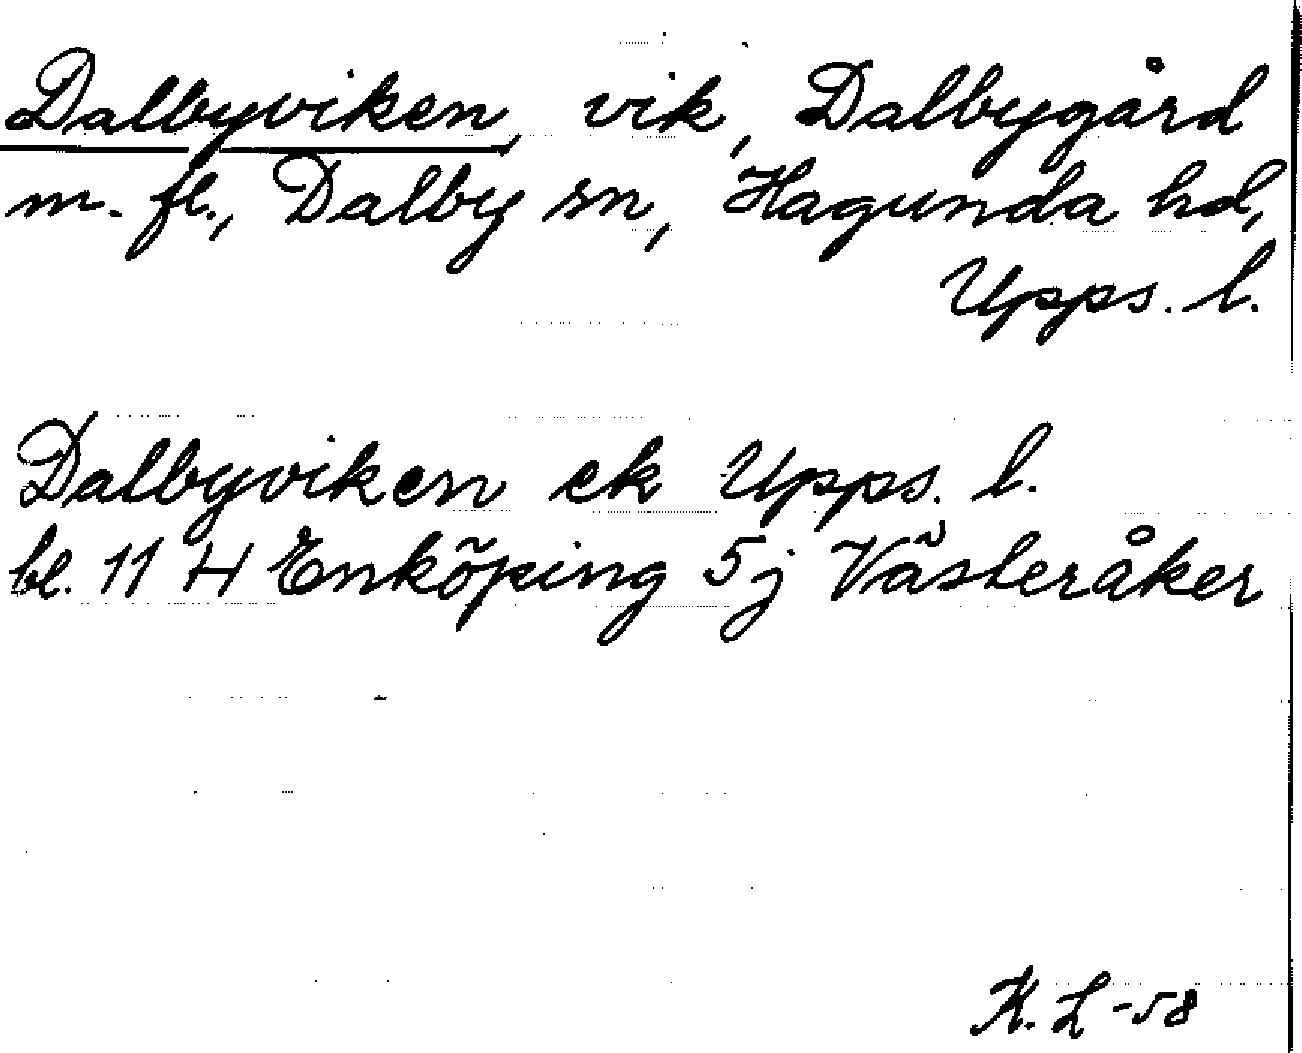 Dalbyviken, vik, Dalbygård
m. fl., Dalby sn, Hagunda hd,
Upps. l.
Dalbyviken ek Upps. l.
bl. 11 H Enköping 5j Västeråker
K. L -58